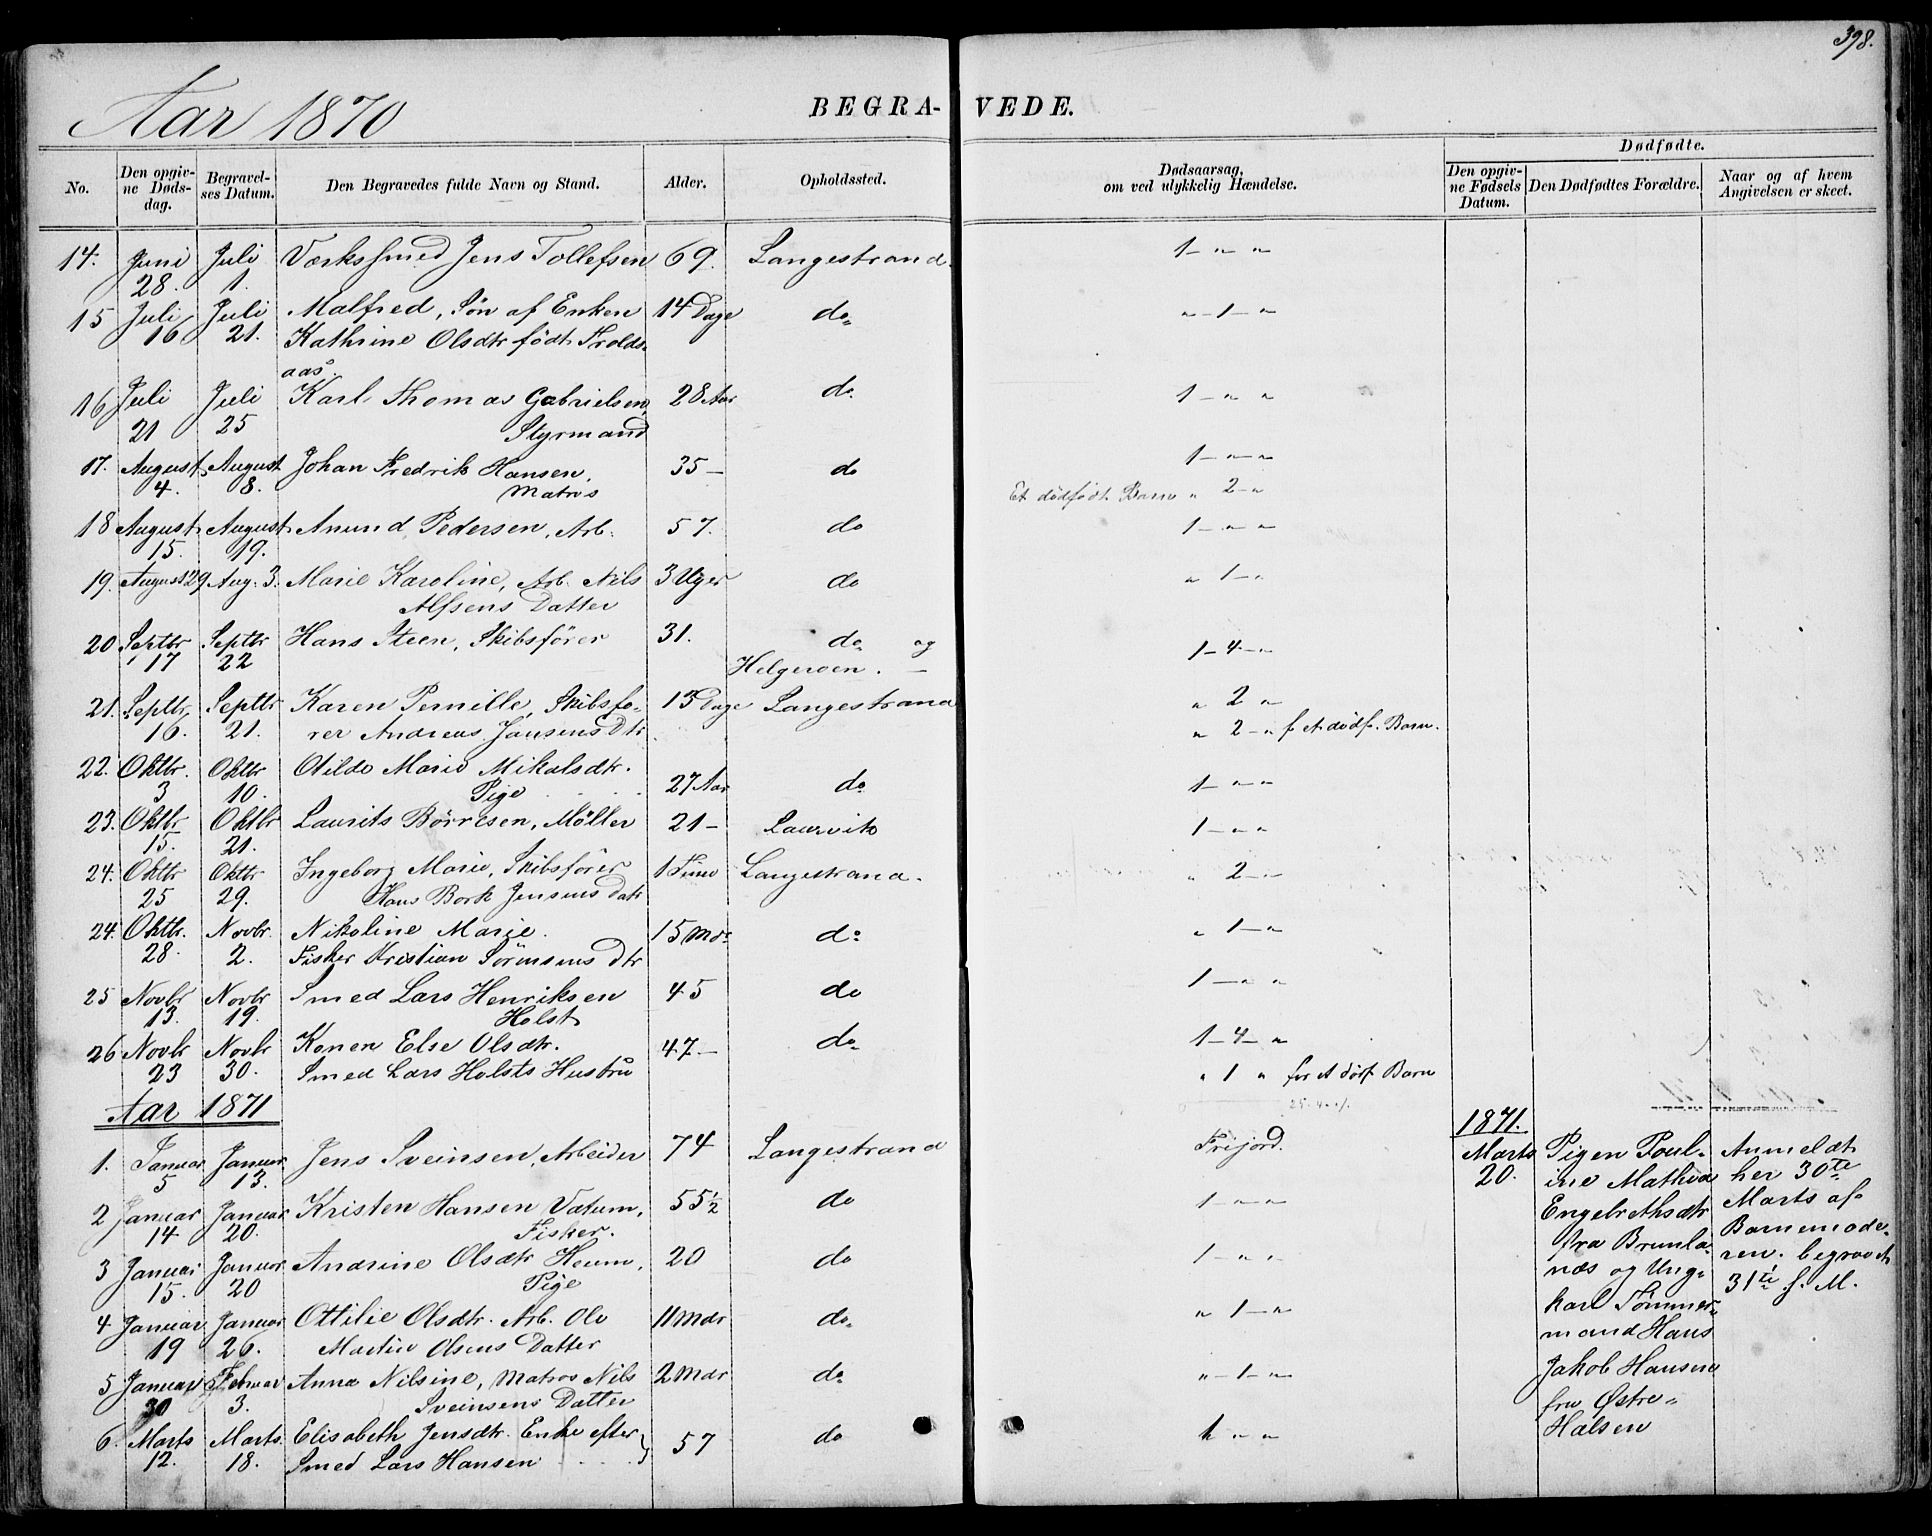 398.
Aar 1870
BEGRA- VEDE.
No.
Den opgiv-
ne Døds-
dag.
Begravel-
ses Datum.
Den Begravedes fulde Navn og Stand.
Alder.
Opholdssted.
Dødsaarsag,
om ved ulykkelig Hændelse.
Dødfødte.
Den opgiv-
ne Fødsels
Datum.
Den Dødfødtes Forældre.
Naar og af hvem
Angivelsen er skeet.
14. Juni Juli Værkssmed Jens Tollefsen 69. Langestrand. 1 - " "
28. 1.
15 Juli Juli Malfred, Søn af Enken 14 Dage do " - 1 - "
16 21. Kathrine Olsdtr født Trolds-
aas.
16 Juli Juli Karl Thomas Gabrielsen, 28 Aar do. 1 - " "
21 25 Styrmand
17. August August Johan Fredrik Hansen, 35 - do 1 - " - "
4. 8. Matros Et dödfödt Barn " 2 - "
18 August August Anund Pedersen, Arb. 57. do 1 - " "
15. 19.
19. August 29 Aug. 3. Marie Karoline, Arb. Nils 3 Uger do " 1 - "
Alfsens Datter
20 Septbr Septbr Hans Steen, Skibsfører 31. do og 1 - 4 - "
17 22 Helgeroen. -
21. Septbr Septbr Karen Pernille, Skibsfø- 13 Dage Langestrand " 2 "
16. 21. rer Andreas Jansens Dtr " 2 - " f. et dødf. Barn.
22. Oktbr. Oktbr Otilde Marie Mikalsdtr. 27 Aar do 1 - " "
3 10. Pige
23. Oktbr Oktbr Laurits Börresen, Möller 21 - Laurvik 1 - " "
15. 21.
24. Oktbr Oktbr Ingeborg Marie, Skibsfører 1 Time Langestrand. " 2 - "
25 29. Hans Bork Jensens Datr
24. Oktbr. Novbr. Nikoline Marie. 15 Mdr do " 1 - "
28. 2. Fisker Kristian Sörensens Dtr
25 Novbr Novbr Smed Lars Henriksen 45 do 1 - " "
13. 19. Holst
26 Novbr Novbr Konen Else Olsdtr. 47 - do 1 - 4 - "
23 30. Smed Lars Holsts Hustru " 1 " for et dödf Barn
Aar 1871
1. Januar Januar Jens Sveinsen, Arbeider 74 Langestrand Frijord.
5 13.
2 Januar Januar Kristen Hansen Vatum, 55½ do 1 - " "
14 20. Fisker.
3 Januar Januar Andrine Olsdtr Heum, 20 do 1 - " "
15. 20 Pige
4 Januar Januar Ottilie Olsdtr. Arb. Ole 11 Mdr do " 1 - "
19 26. Martin Olsens Datter
5 Januar Februar Anna Nilsine, Matros Nils 2 Mdr do " - 1 - "
30 3. Sveinsens Datter
6. Marts Marts. Elisabeth Jensdtr. Enke efter 57 do 1 " "
12. 18. Smed Lars Hansen
1871.
Marts
20.
Pigen Poul-
ine Mathea
Engebrethsdtr
fra Brunla-
næs og Ung-
karl Tömmer-
mand Hans
Jakob Hansen
fra Østre-
Halsen
Anmeldt
her 30te
Marts af
Barnemode-
ren. begravet
31te s. M.